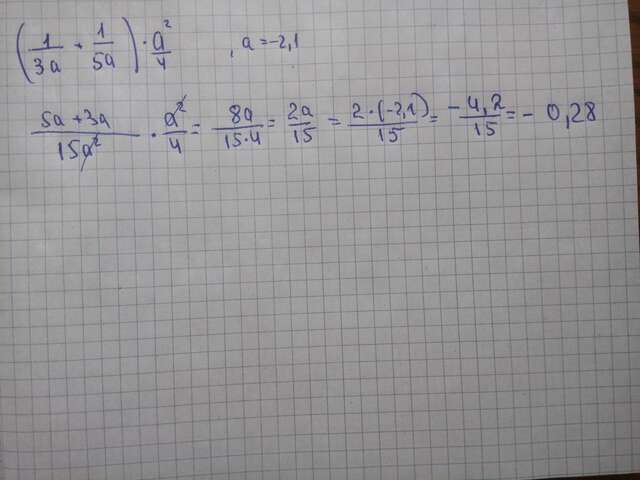 (1/3a + 1/5a) · a²/4 , a = -2,1
(5a + 3a)/15a² · a²/4 = 8a/(15·4) = 2a/15 = 2·(-2,1)/15 = -4,2/15 = - 0,28